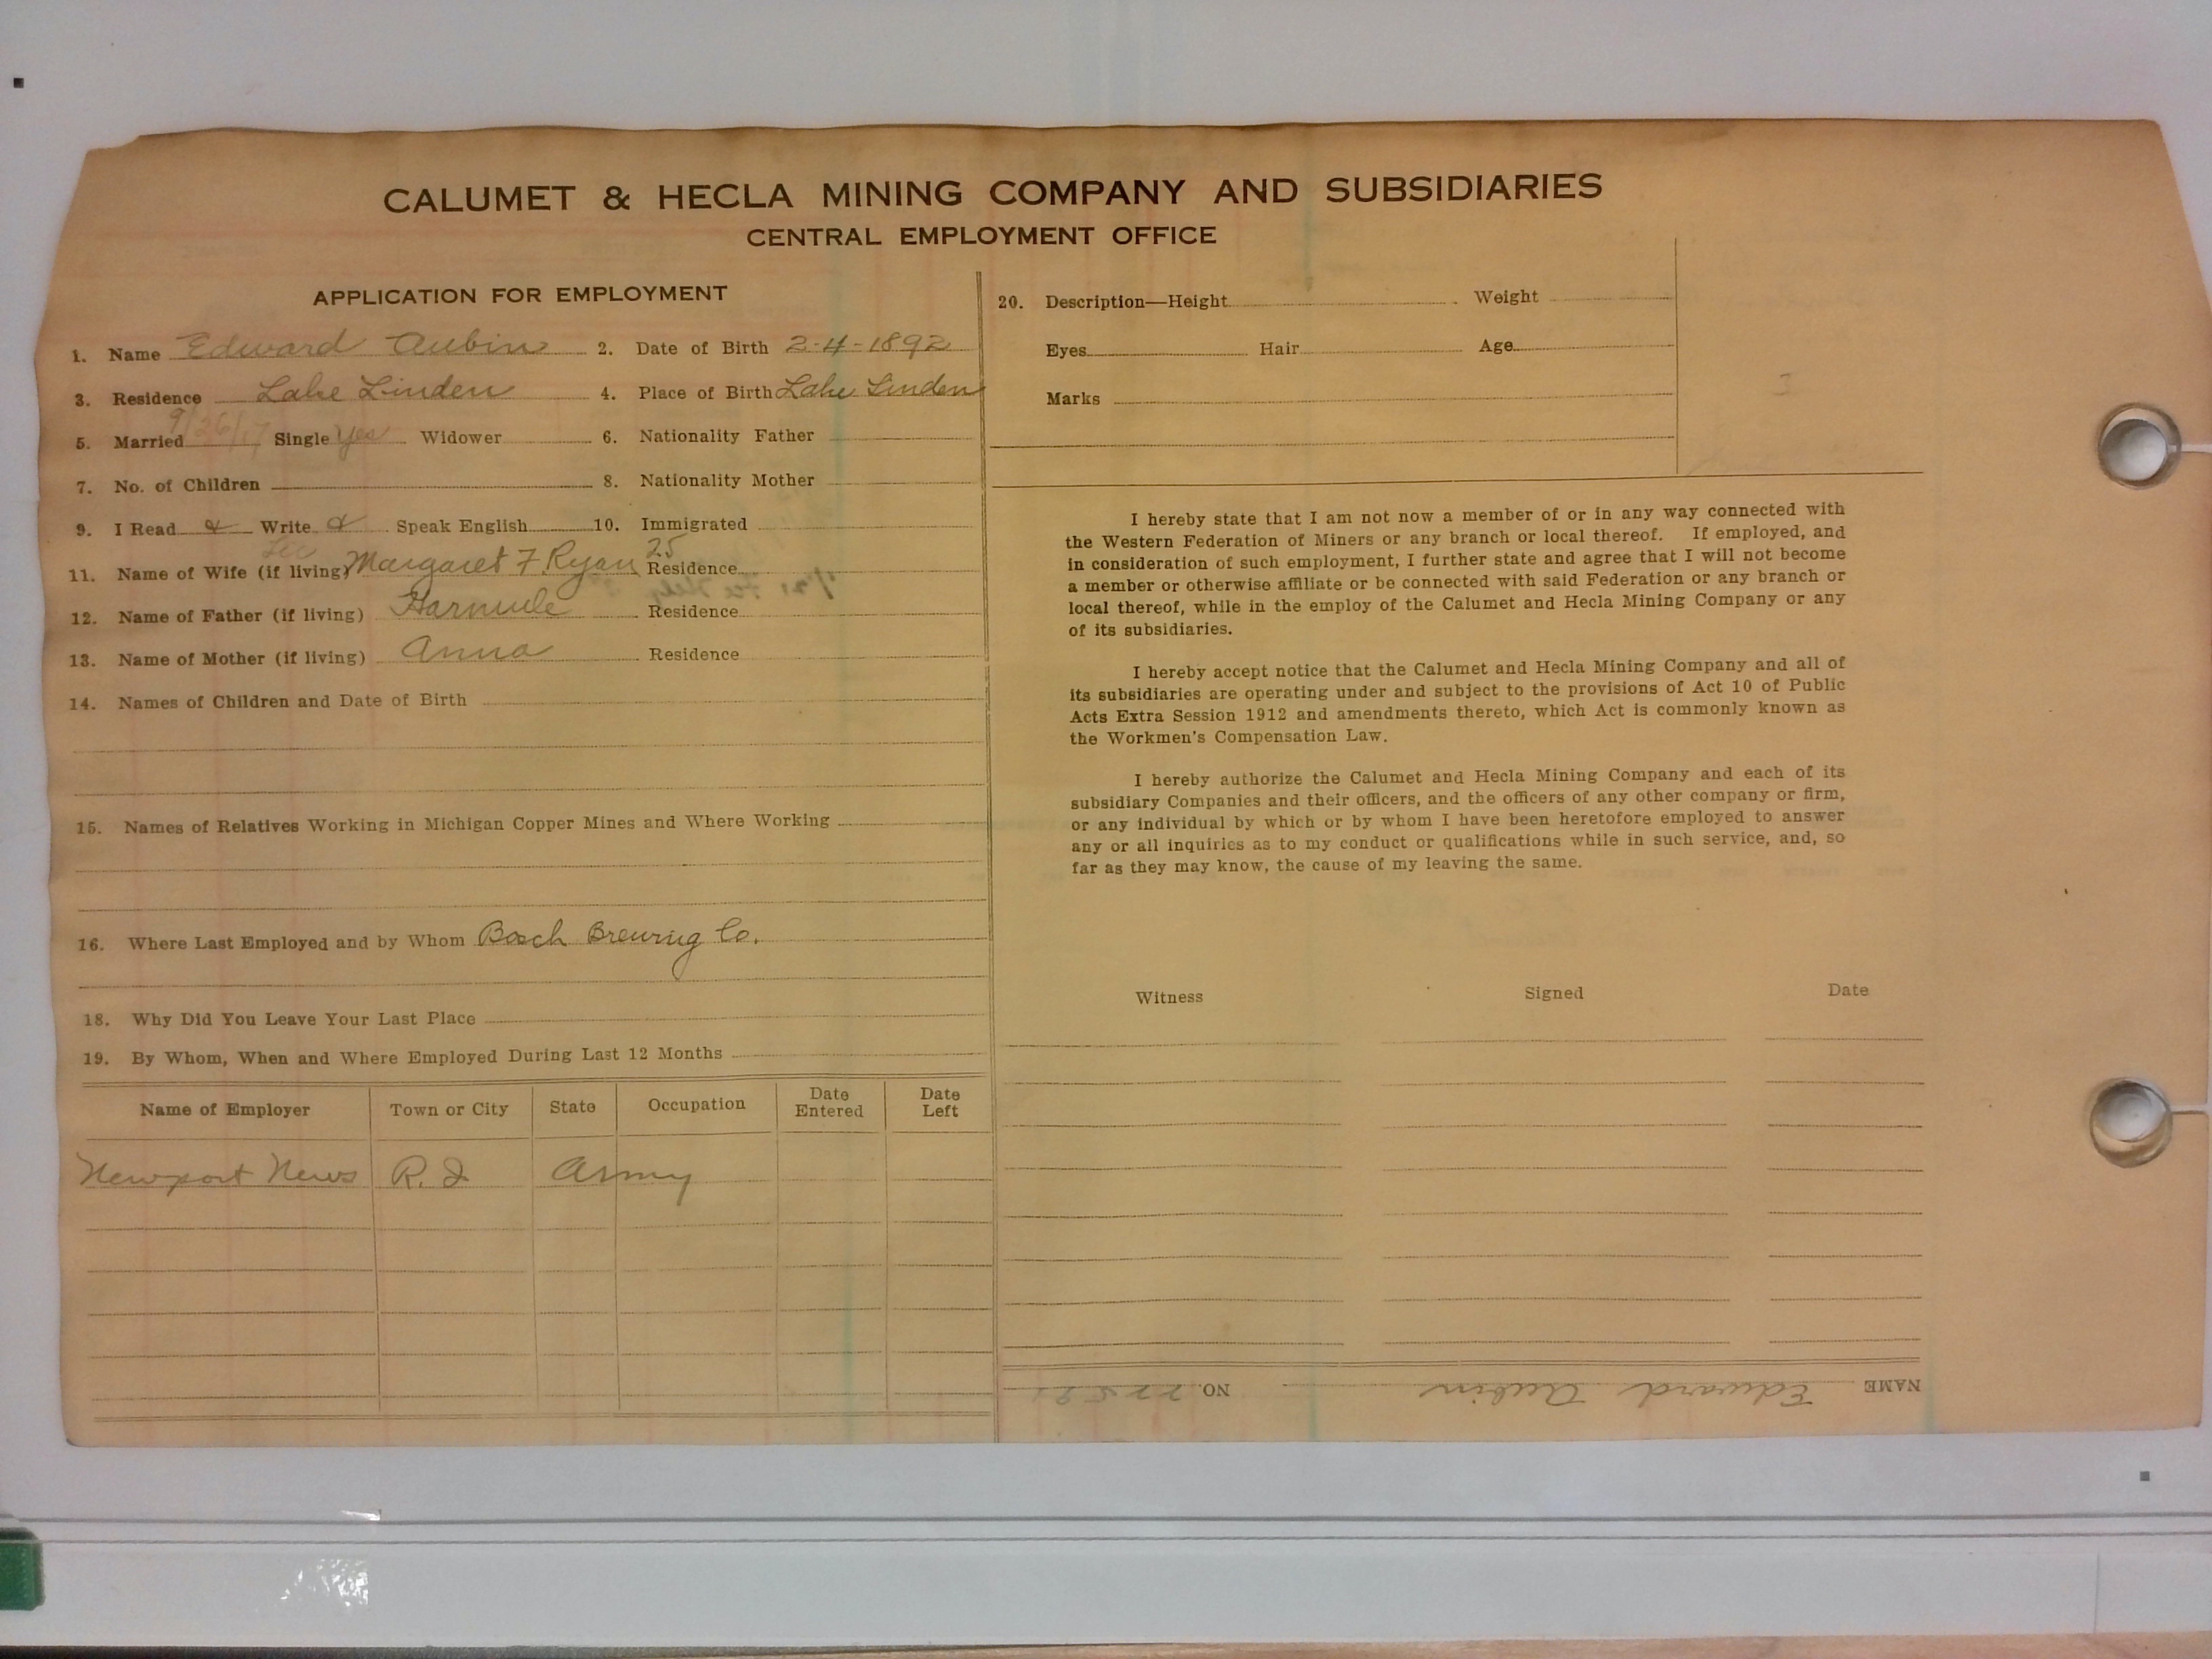 CALUMET & HECLA MINING COMPANY AND SUBSIDIARIES
CENTRAL EMPLOYMENT OFFICE
APPLICATION FOR EMPLOYMENT
1. Name Edward Aubin 2. Date of Birth 2-4-1892
3. Residence Lake Linden 4. Place of Birth Lake Linden
5. Married 9/26/17 Single Yes Widower 6. Nationality Father
7. No. of Children 8. Nationality Mother
9. I Read Write Speak English 10. Immigrated
Lic 25
11. Name of Wife (if living) Margaret F Ryan Residence
12. Name of Father (if living) Residence
13. Name of Mother (if living) Anna Residence
14. Names of Children and Date of Birth
15. Names of Relatives Working in Michigan Copper Mines and Where Working
16. Where Last Employed and by Whom Bosch Brewing Co.
18. Why Did You Leave Your Last Place
19. By Whom, When and Where Employed During Last 12 Months
Name of Employer Town or City State Occupation Date Entered Date Left
Newport News R.I Army
20. Description—Height Weight
Eyes Hair Age
Marks
3
I hereby state that I am not now a member of or in any way connected with
the Western Federation of Miners or any branch or local thereof. If employed, and
in consideration of such employment, I further state and agree that I will not become
a member or otherwise affiliate or be connected with said Federation or any branch or
local thereof, while in the employ of the Calumet and Hecla Mining Company or any
of its subsidiaries.
I hereby accept notice that the Calumet and Hecla Mining Company and all of
its subsidiaries are operating under and subject to the provisions of Act 10 of Public
Acts Extra Session 1912 and amendments thereto, which Act is commonly known as
the Workmen's Compensation Law.
I hereby authorize the Calumet and Hecla Mining Company and each of its
subsidiary Companies and their officers, and the officers of any other company or firm,
or any individual by which or by whom I have been heretofore employed to answer
any or all inquiries as to my conduct or qualifications while in such service, and, so
far as they may know, the cause of my leaving the same.
Witness Signed Date
NAME Edward Aubin NO.